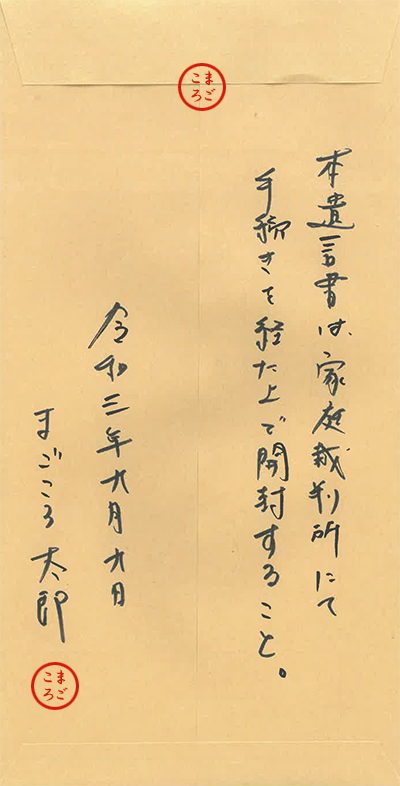 まごころ
本遺言書は、家庭裁判所にて
手続きを経た上で開封すること。
令和三年九月九日
まごころ太郎
まごころ